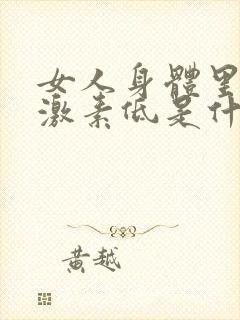 女人身體里
激素低是什
黃越